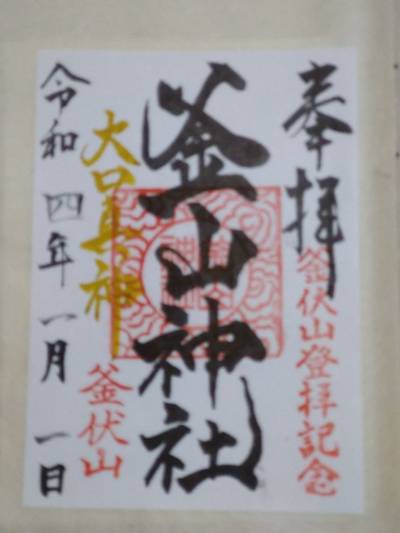 奉拝
釜伏山登拝記念
釜山神社
大口真神
釜伏山
令和四年一月一日